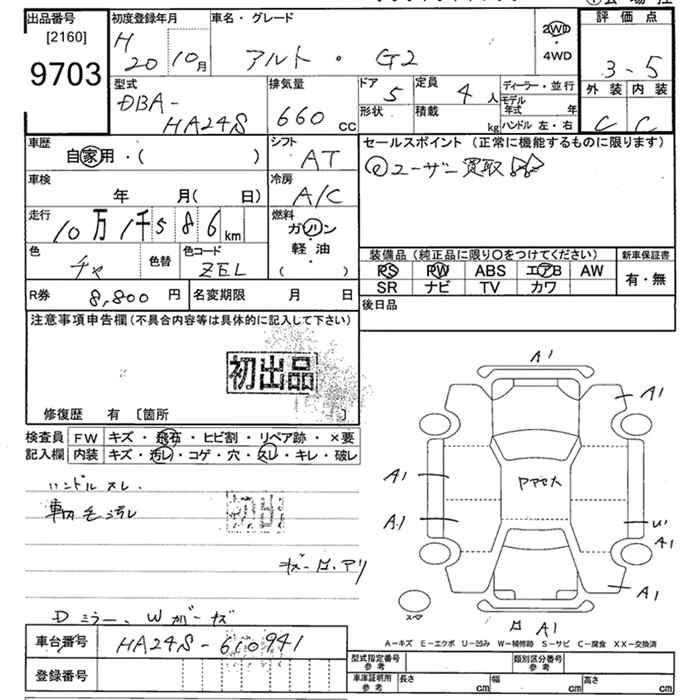 出品番号
[2160]
9703
初度登録年月
H
20 10月
車名・グレード
アルト・G2
2WD
・
4WD
評価点
3-5
外装 内装
C C
型式
DBA-
HA24S
排気量
660 cc
ドア
5
定員
4 人
形状
積載
kg
ディーラー・並行
モデル年式 年
ハンドル 左・右
車歴
自家用・( )
シフト
AT
車検
年 月( 日)
冷房
A/C
走行
10万1千586km
燃料
ガソリン
・
軽油
( )
色
チャ
色替
色コード
ZEL
R券 8,800円
名変期限 月 日
セールスポイント (正常に機能するものに限ります)
ユーザー買取
装備品(純正品に限り○をつけてください)
PS PW ABS エアB AW
SR ナビ TV カワ
新車保証書
有・無
後日品
注意事項申告欄(不具合内容等は具体的に記入して下さい)
初出品
修復歴 有 [箇所 ]
検査員
記入欄
FW キズ・飛石・ヒビ割・リペア跡・×要
内装 キズ・汚レ・コゲ・穴・スレ・キレ・破レ
ハンドルスレ.
初出
A1
A1
A1
A1
A1
A1
スペア
A1
Dミラー、Wガーズ
A-キズ E-エクボ U-凹み W-補修跡 S-サビ C-腐食 XX-交換済
車台番号 HA24S-610941
登録番号
型式指定番号
参考
類別区分番号
参考
車庫証明用
参考
長さ cm 幅 cm 高さ cm